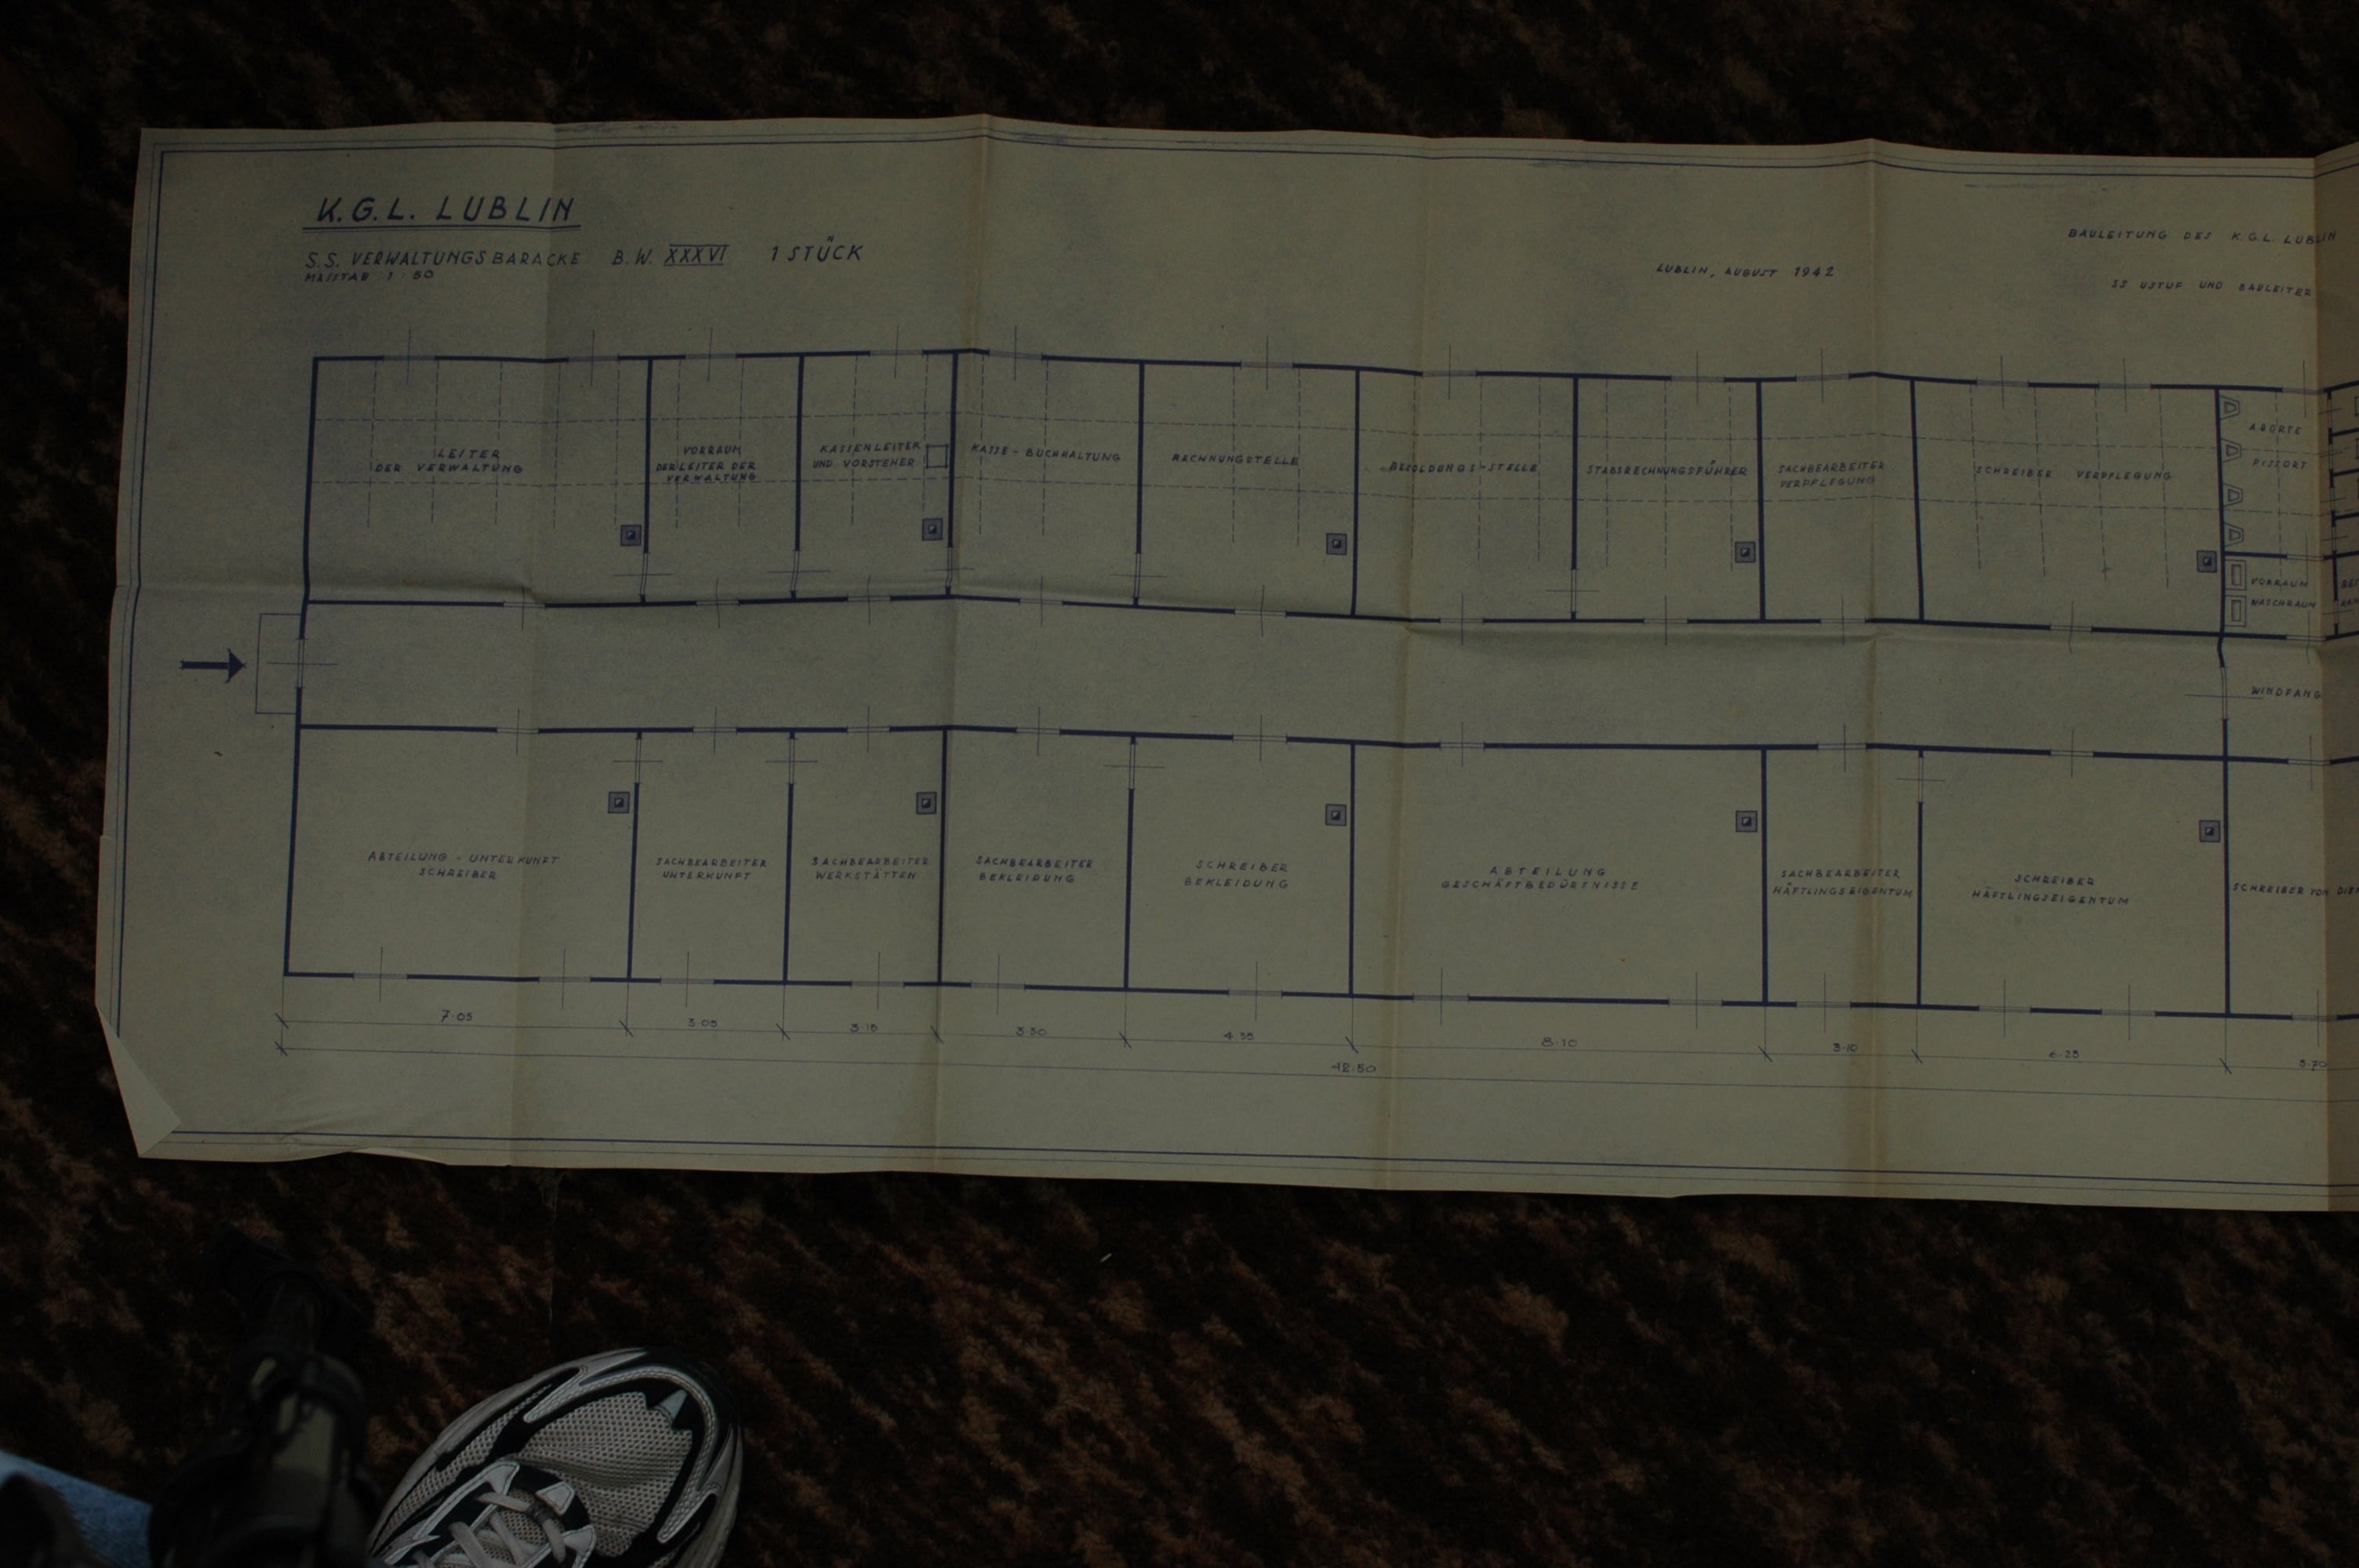 K.G.L. LUBLIN
S.S. VERWALTUNGSBARACKE B.W. XXXVI 1 STÜCK
MASSTAB 1:50
LUBLIN, AUGUST 1942
BAULEITUNG DES K.G.L. LUBLIN
SS USTUF UND BAULEITER
LEITER
DER VERWALTUNG
VORRAUM
DER LEITER DER
VERWALTUNG
KASSENLEITER
UND VORSTEHER
KASSE - BUCHHALTUNG
RECHNUNGSTELLE
BESOLDUNGS-STELLE
STABSRECHNUNGSFÜHRER
SACHBEARBEITER
VERPFLEGUNG
SCHREIBER VERPFLEGUNG
ABORTE
PISSORT
VORRAUM
WATCHRAUM
WINDFANG
ABTEILUNG - UNTERKUNFT
SCHREIBER
SACHBEARBEITER
UNTERKUNFT
SACHBEARBEITER
WERKSTÄTTEN
SACHBEARBEITER
BEKLEIDUNG
SCHREIBER
BEKLEIDUNG
ABTEILUNG
GESCHÄFTBEDÜRFNISSE
SACHBEARBEITER
HÄFTLINGSEIGENTUM
SCHREIBER
HÄFTLINGSEIGENTUM
SCHREIBER VOM
7.05
3.05
3.15
3.80
4.55
8.10
3.10
6.25
5.70
42.50